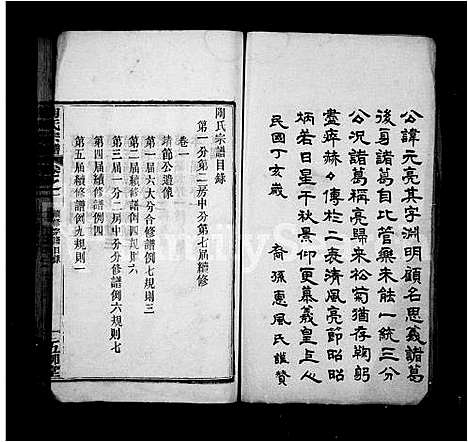 公諱元亮其字淵明顧名思義諸葛
後身諸葛自比管樂未蝕一統三分
公況諸葛稱亮歸來松菊猶存鞠躬
盡瘁赫々傳於二表清風亮節昭昭
炳若日星千秋景仰更慕羲皇上人
民國丁亥歲 裔孫惠風氏謹贊
陶氏宗譜目錄
第一分第二房中分第七届續修
卷一
靖節公遺像
第一届六大分合修譜例七規則三
第二届續修譜例六
第三届一分二房中分修譜例六規則七
第四届續修譜例四
第五届續修譜例九規則一